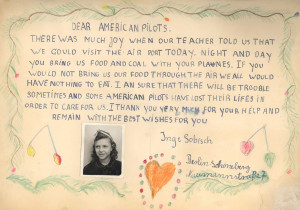 DEAR AMERICAN PILOTS.
THERE WAS MUCH JOY WHEN OUR TEACHER TOLD US THAT
WE COULD VISIT THE AIR PORT TODAY. NIGHT AND DAY
YOU BRING US FOOD AND COAL WITH YOUR PLANES. IF YOU
WOULD NOT BRING US OUR FOOD THROUGH THE AIR WE ALL WOULD
HAVE NOTHING TO EAT. I AM SURE THAT THERE WILL BE TROUBLE
SOMETIMES AND SOME AMERICAN PILOTS HAVE LOST THEIR LIFES IN
ORDER TO CARE FOR US. I THANK YOU VERY MUCH FOR YOUR HELP AND
REMAIN WITH THE BEST WISHES FOR YOU
Inge Sobisch
Berlin Schöneberg